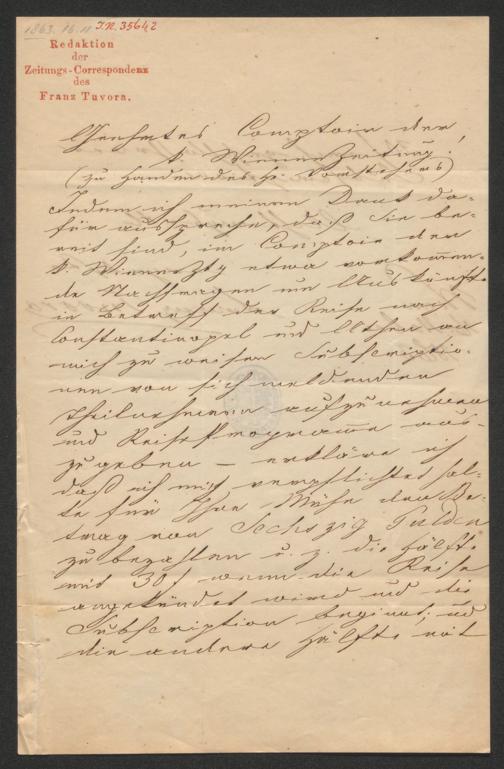 1863. 16. 11 I.N. 35642
Redaktion
der
Zeitungs-Correspondenz
des
Franz Tuvora.
Geehrtes Comptoir der
k. Wiener Zeitung!
(zu Handen des H. Vorstehers)
Indem ich meinen Dank da-
für ausspreche, daß Sie be-
reit sind, im Comptoir der
k. Wiener Ztg etwa vorkommen-
de Nachfragen um Auskünfte
in Betreff der Reise nach
Constantinopel und Athen an
mich zu weisen Subscriptio-
nen von sich meldenden
Theilnehmern aufzunehmen
und Reise Programme aus-
zugeben – erkläre ich
daß ich mich verpflichtet hal-
te für Ihre Mühe den Be-
trag von Sechszig Gulden
zu bezahlen u. z. die Hälfte
mit 30 f wenn die Reise
angekündet wird und die
Subscription beginnt; und
die andere Hälfte mit